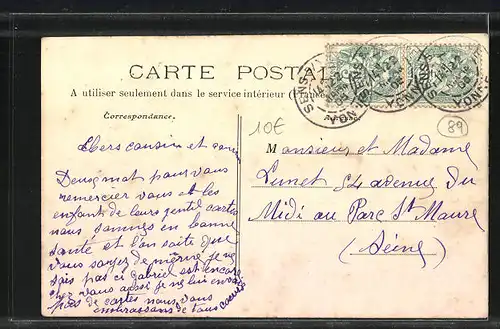 CARTE POSTALE
A utiliser seulement dans le service intérieur (France
Correspondance.
10€
89
SENS
YONNE
Chers cousin et cousi
Deux mot pour vous
remercier vous et les
enfants de leurs gentil cartes
nous sommes en bonne
santé et l'on saite que
vous soyez de même je ne
sais pas si gabriel est encore
chez vous aussi je ne lui envoi
pas de cartes nous vous
embrassons de tous coeurs
Monsieur et Madame
Lunet 64 avenue du
Midi au Parc St Maure
(Seine)